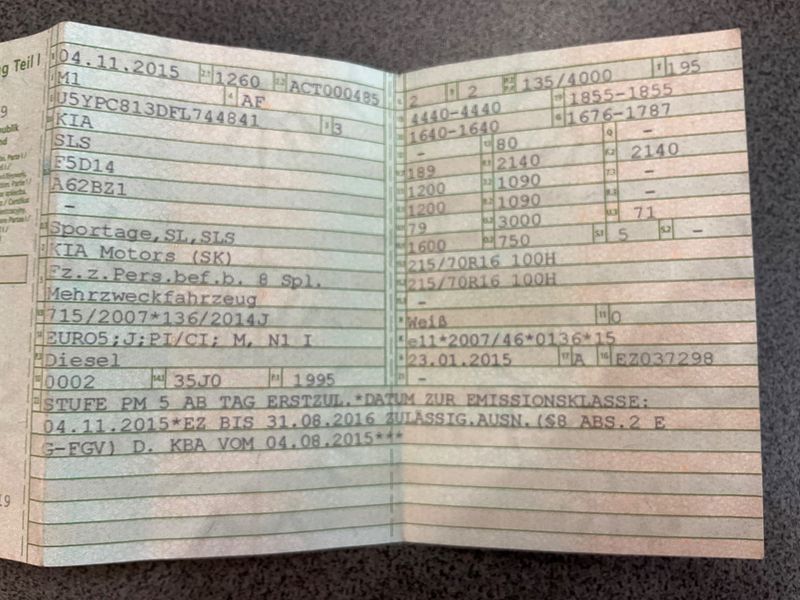 g Teil I
04.11.2015 2.1 1260 2.2 ACT000485
M1 4 AF
U5YPC813DFL744841 3 3
KIA
SLS
F5D14
A62BZ1
-
Sportage,SL,SLS
KIA Motors (SK)
Fz.z.Pers.bef.b. 8 Spl.
Mehrzweckfahrzeug
715/2007*136/2014J
EURO5;J;PI/CI; M, N1 I
Diesel
0002 14.1 35J0 P.1 1995
STUFE PM 5 AB TAG ERSTZUL.*DATUM ZUR EMISSIONSKLASSE:
04.11.2015*EZ BIS 31.08.2016 ZULÄSSIG.AUSN.(§8 ABS.2 E
G-FGV) D. KBA VOM 04.08.2015***
2 9 2 135/4000 T 195
4440-4440 1855-1855
1640-1640 1676-1787
- 13 80 Q -
189 2140 2140
1200 1090 -
1200 1090 -
79 3000 71
1600 750 S.1 5 S.2 -
215/70R16 100H
215/70R16 100H
-
Weiß 11 0
e11*2007/46*0136*15
23.01.2015 17 A 16 EZ037298
-